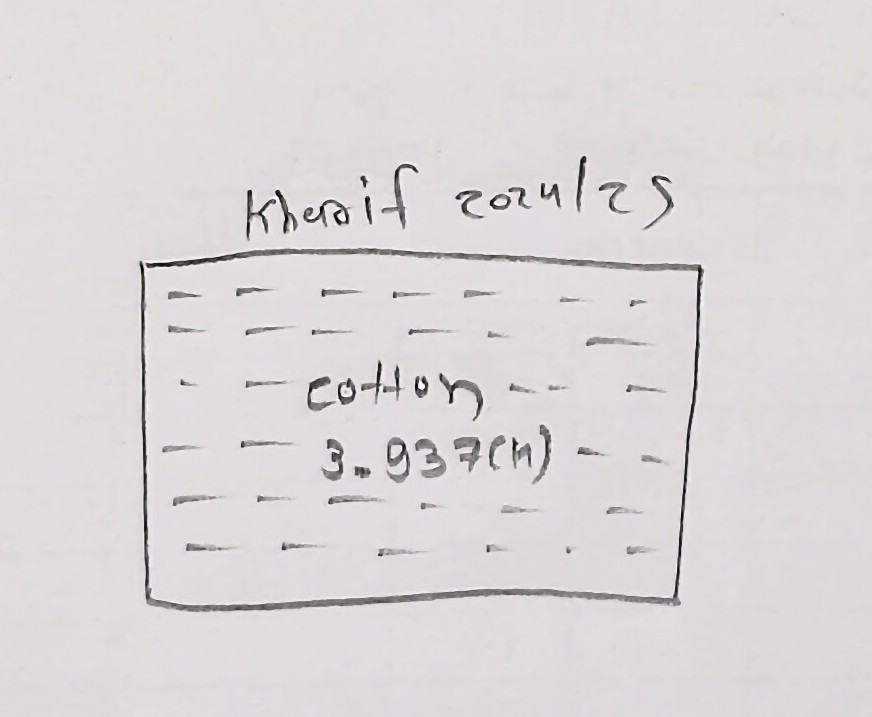 Kharif 2024/25
cotton
3.937(H)